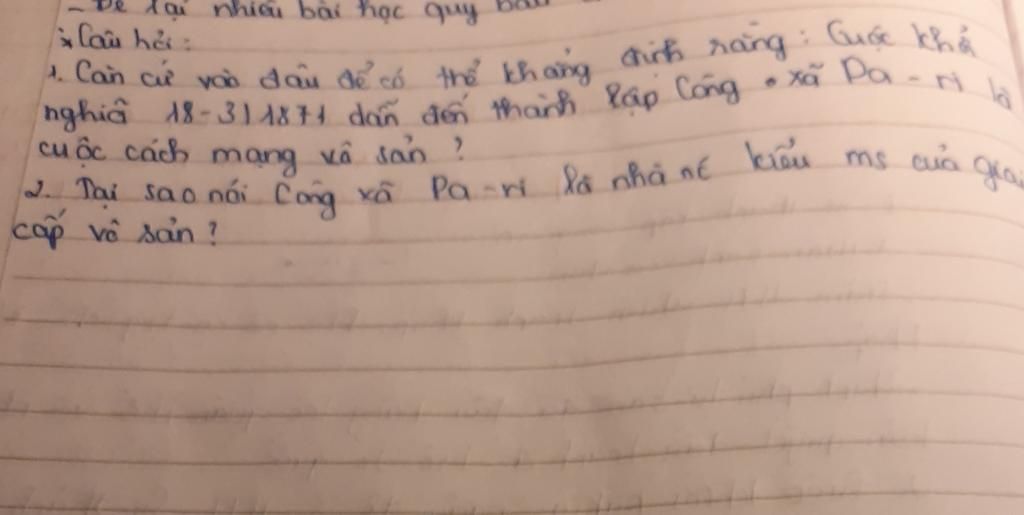 - Để lại nhiều bài học quý báu
* Câu hỏi:
1. Căn cứ vào đâu để có thể khẳng định rằng: Cuộc khở
nghĩa 18-3/1871 dẫn đến thành lập Công xã Pa-ri là
cuộc cách mạng vô sản?
2. Tại sao nói Công xã Pa-ri là nhà nc kiểu ms của giai
cấp vô sản?